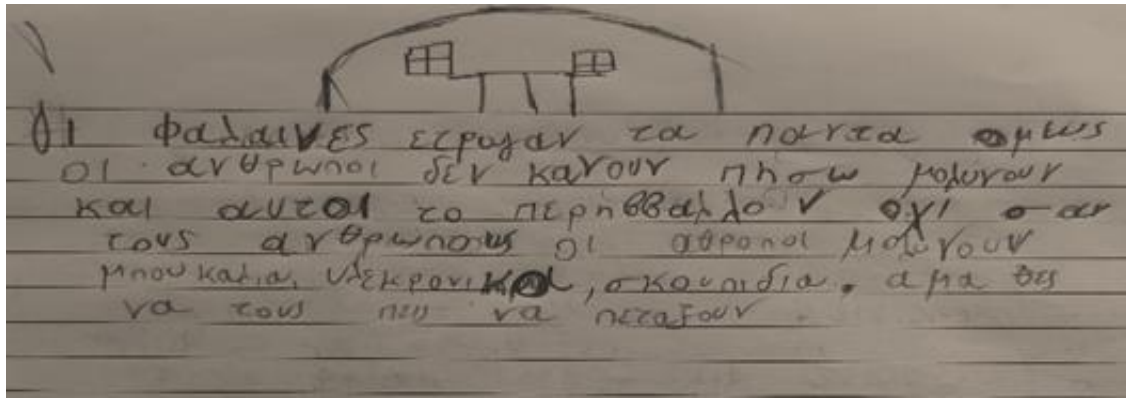 Οι φαλαινες ετρωγαν τα παντα ομως
οι ανθρωποι δεν κανουν πησω μολυνουν
και αυτοι το περηββαλλον οχι σαν
τους ανθρωπους οι αθροποι μολυνουν
μπουκαλια, υλεκρονικα, σκουπιδια. αμα θες
να τους πεις να πεταξουν